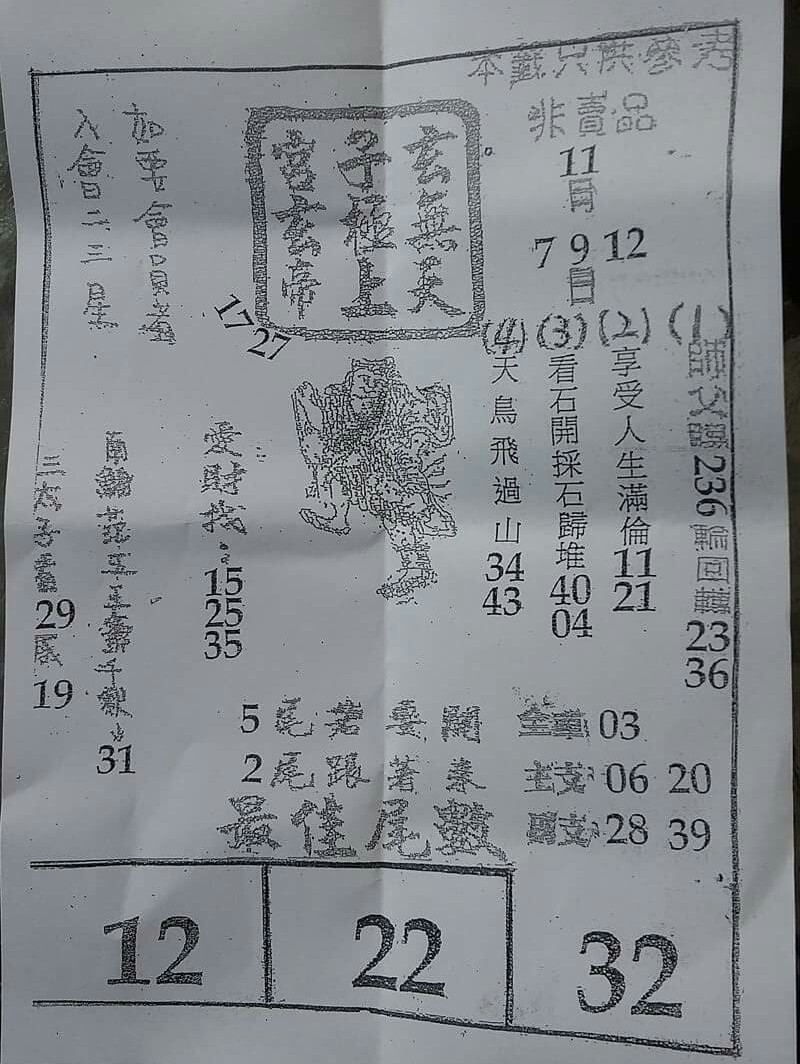 本籤只供參考
非賣品
11
月
7 9 12
日
玄無天
子極上
宮玄帝
如要會員者
入會二三星
17
27
(1) 師父 236 輪回轉 23 36
(2) 享受人生滿倫 11 21
(3) 看石開採石歸堆 40 04
(4) 天鳥飛過山 34 43
愛財找 15 25 35
31
29
19
5尾若要開
2尾跟著來
最佳尾數
全車 03
主支 06 20
28 39
12 22 32